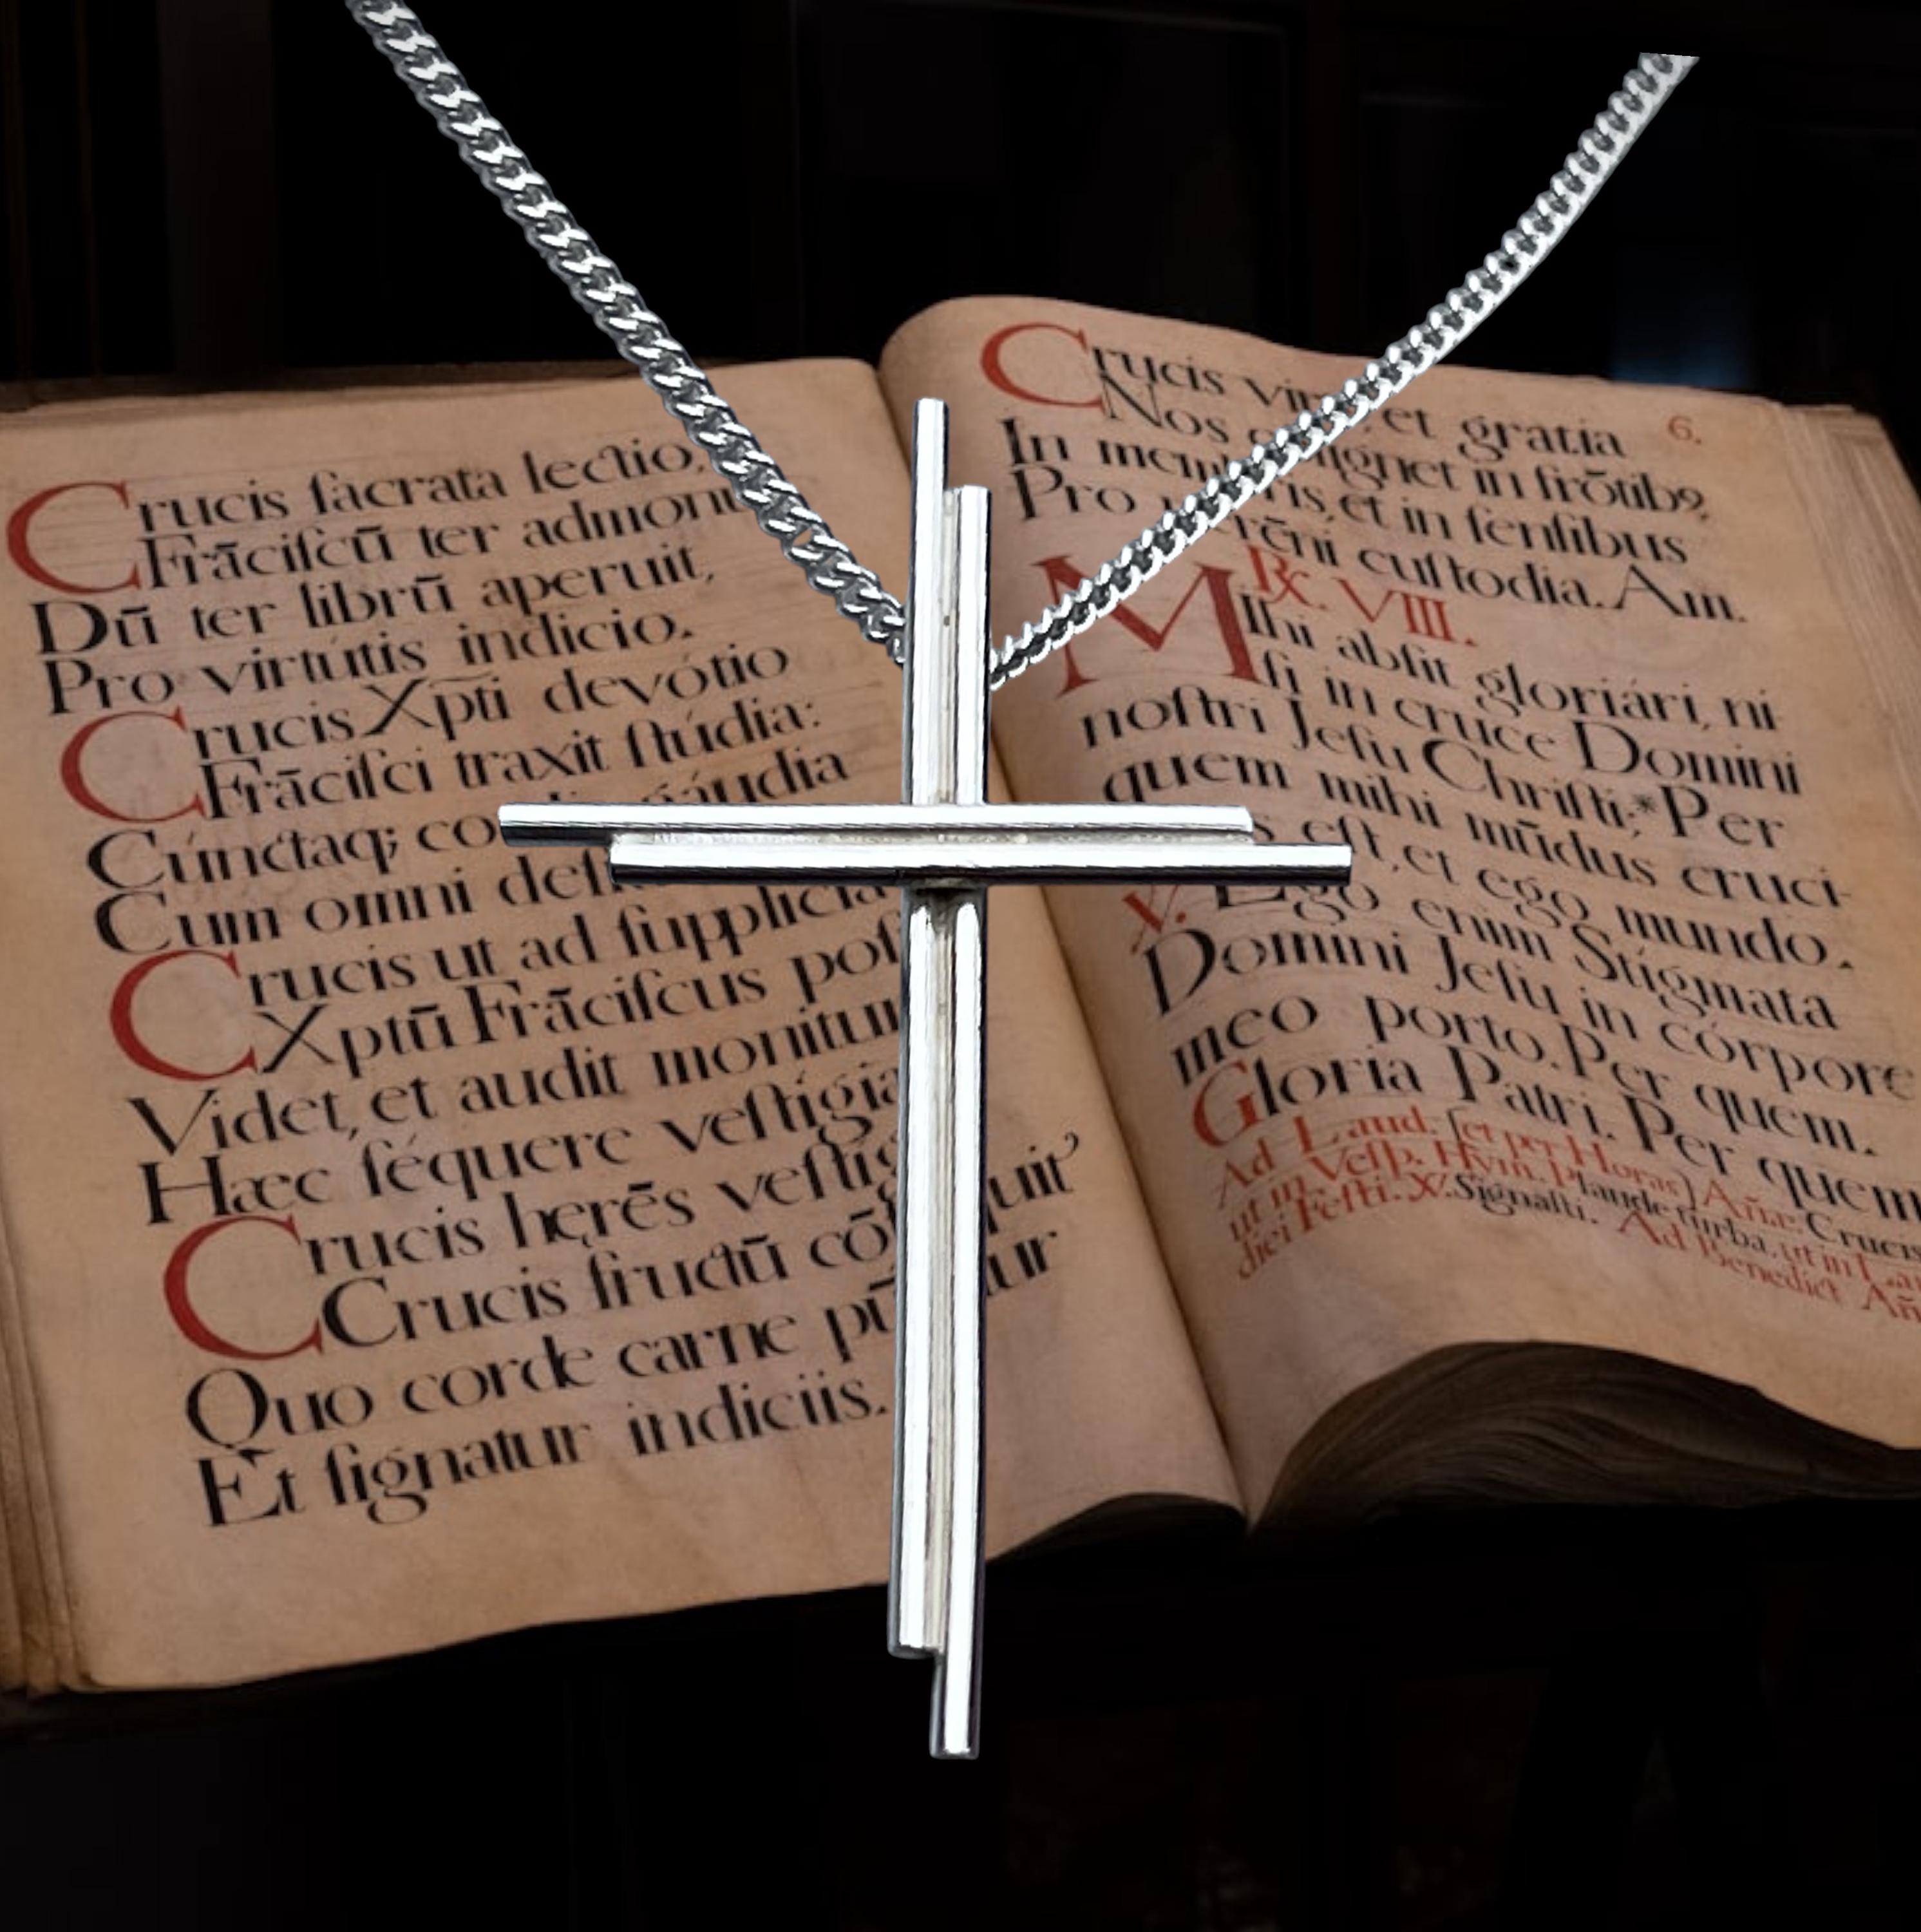 Crucis ſacrata lectio,
Frāciſcū ter
Dū ter librū aperuit,
Pro virtútis indicio.
Crucis Xp̄ti devótio
Frāciſci traxit ſtúdia:
Cúnctaq; gáudia
Cum omni
Crucis ut ad ſupplicia
Xptū Frāciſcus
Videt, et audit
Hæc ſéquere veſtígia
Crucis hęrēs
Crucis fructū
Quo corde carne
Et ſignatur indiciis.
Crucis et gratia 6.
Nos ſignet in frōtibꝰ,
In et in ſenſibus
Pro cuſtodia. Am.
℟. VIII.
Mihi abſit gloriári, ni-
ſi in cruce Domini
noſtri Jeſu Chriſti;* Per
quem mihi mūdus cruci-
eſt, et ego mundo.
℣. Ego enim Stigmata
Domini Jeſu in córpore
meo porto. Per quem.
Gloria Patri. Per quem
Ad Laud. (et per Horas) Añæ. Crucis
ut in Veſp. Hym. Plaude turba, ut in Lau
dici Feſti. ℣. Signaſti. Ad Benedict Añ